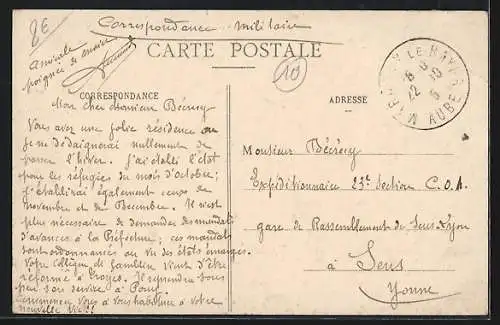 8€
Correspondance militaire
amicale
poignée de main
CARTE POSTALE
10
CORRESPONDANCE
ADRESSE
LE-HAYER
22
AUBE
Mon cher Monsieur Bécrecy
Vous avez une jolie résidence ou
je ne dédaignerai nullement de
passer l'hiver. J'ai établi l'état
pour les réfugiés du mois d'octobre;
j'établirai également ceux de
novembre et de Decembre. Il n'est
plus nécessaire de demander des mandats
d'avances à la Préfecture; ces mandats
sont ordonnancés au vu des états émargés.
Votre collègue de vient d'être
réformé à Troyes. Il reprendra sous
peu son service à
Commencez vous à vous habituer à votre
nouvelle vie?
Monsieur Bécrecy
Expéditionnaire 23e Section C.O.A.
gare de Rassemblement de Sens-Lyon
à Sens
Yonne